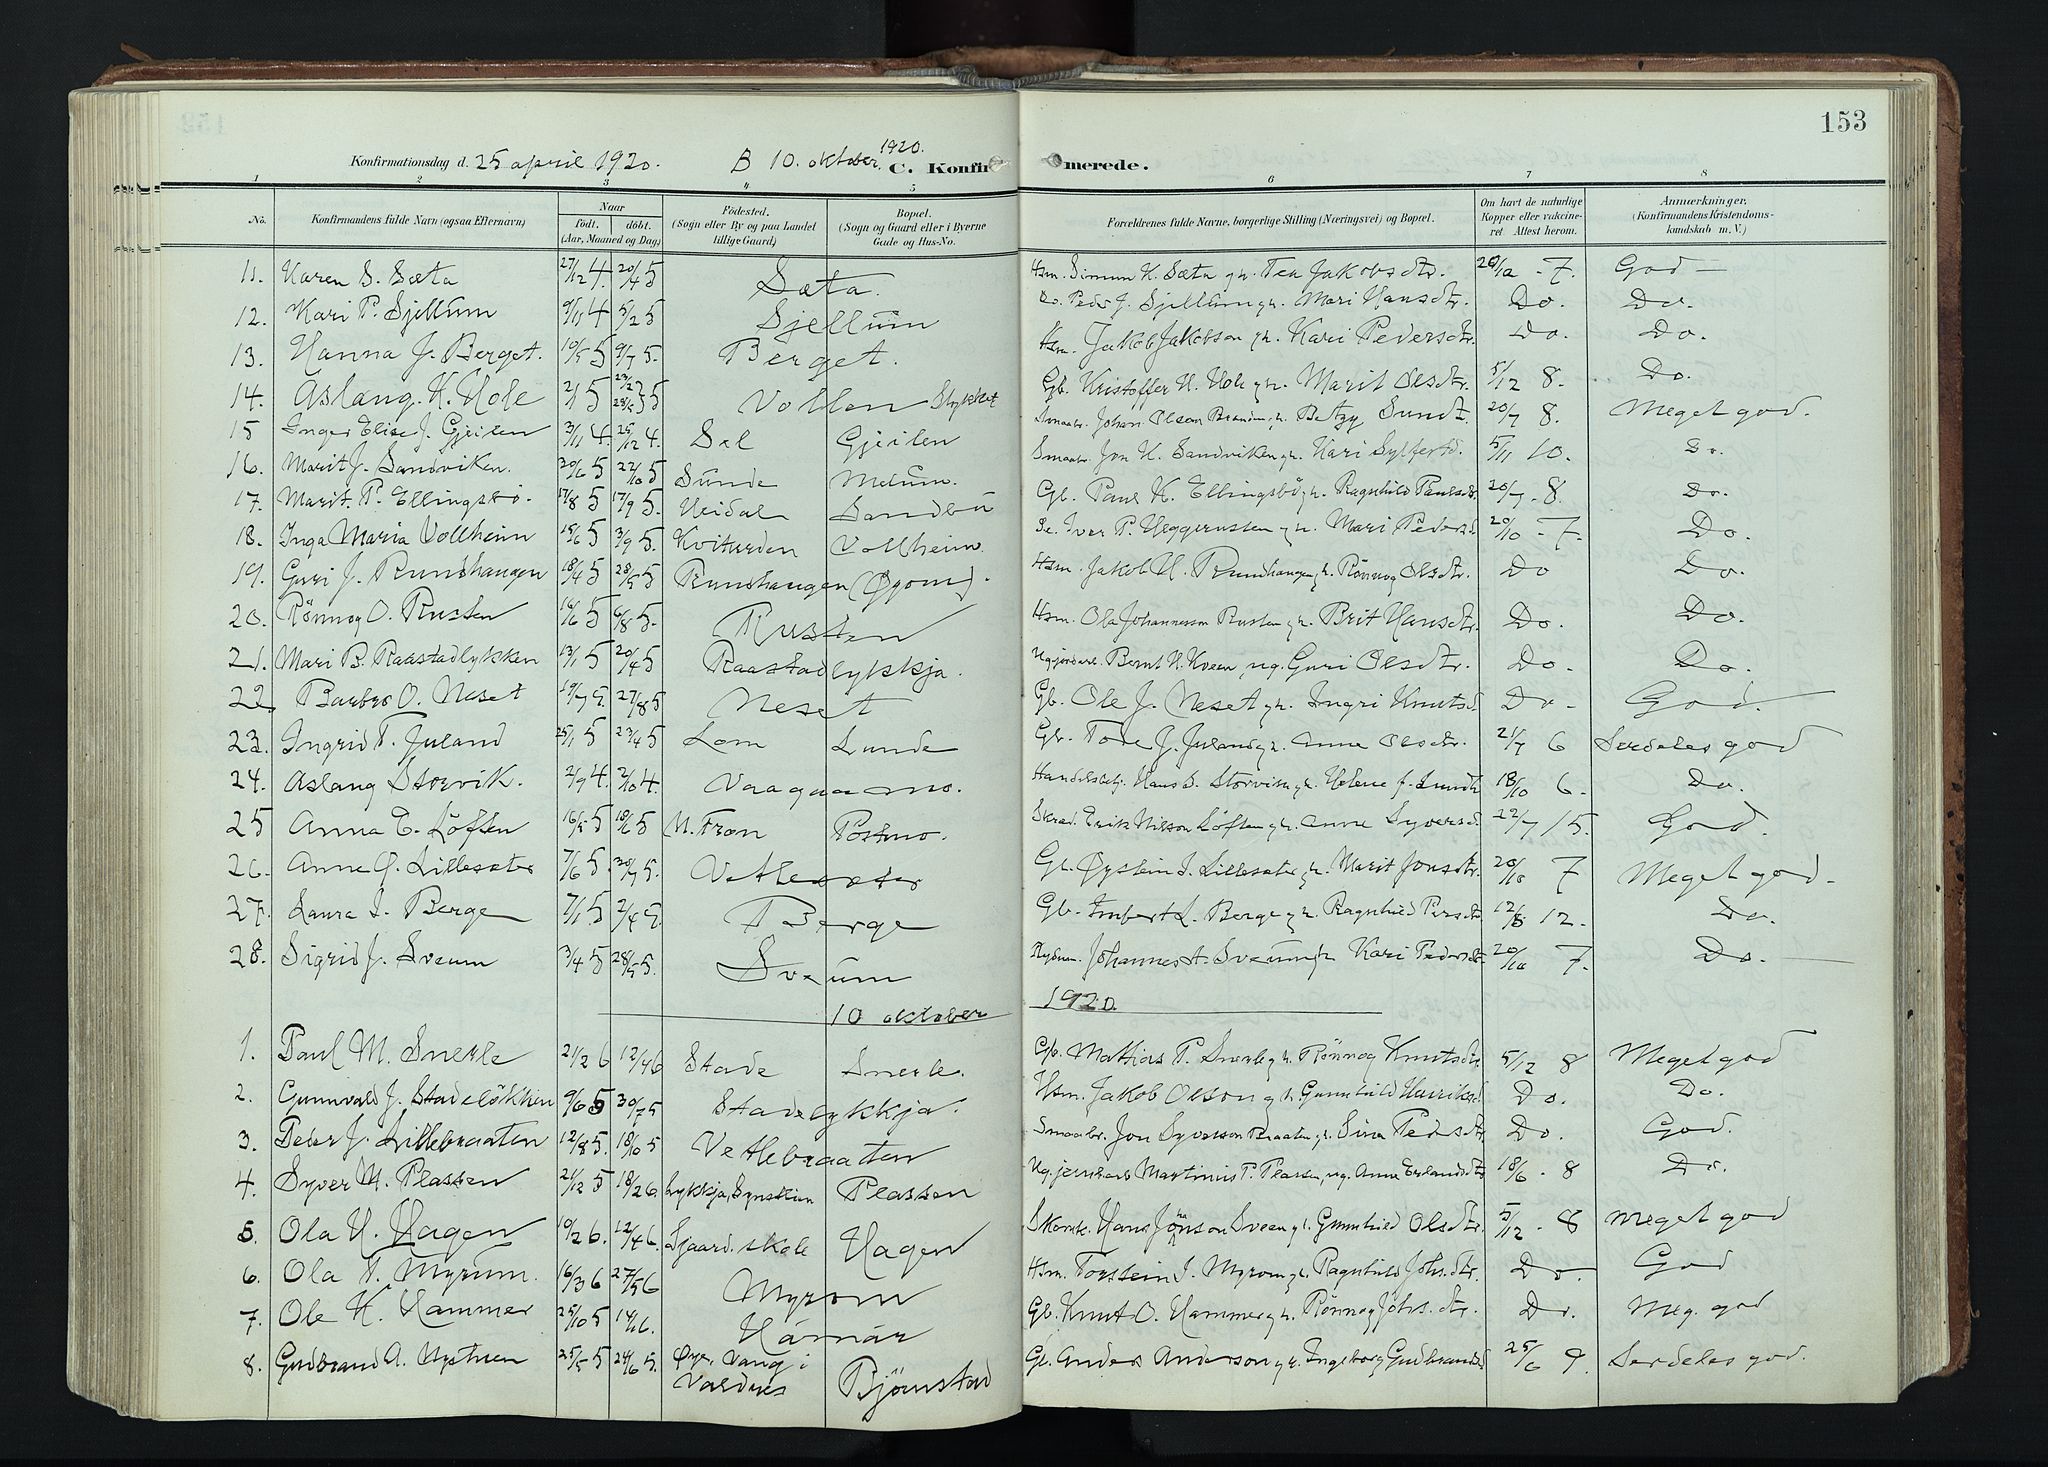 153
Konfirmationsdag d. 25 april 1920. B 10. oktober 1920. C. Konfirmerede.
1 2 3 4 5 6 7 8
No. Konfirmandens fulde Navn (ogsaa Efternavn) Naar født. døbt. (Aar, Maaned og Dag) Fødested. (Sogn eller By og paa Landet tillige Gaard) Bopæl. (Sogn og Gaard eller i Byerne Gade og Hus-No. Forældrenes fulde Navne, borgerlige Stilling (Næringsvei) og Bopæl. Om havt de naturlige Kopper eller vaccineret Attest herom. Anmærkninger. (Konfirmandens Kristendomskundskab m. V.)
11. Karen S. Sæta 27/12 4 20/4 5 Sæta. Hsm. Simon K. Sæta g. h. Tea Jakobsdtr. 20/10 - 7. God
12. Kari P. Sjellum 9/11 4 5/2 5 Sjellum Do. Peder J. Sjellum g. h. Mari Hansdtr. Do. Do.
13. Hanna J. Berget. 10/5 5 9/7 5. Berget. Hsm. Jakob Jakobson g. h. Kari Pedersdtr. Do. Do.
14. Aslaug K. Hole Vollen Stykket Gb. Kristoffer H. Hole g. h. Marit Olsdtr. 5/12 8. Do.
15 Inger Elise J. Gjeilen 3/11 4. 25/12 4. Sel Gjeilen Smaabr. Johan Olsen g. h. Betzy Sundt. 20/7 8. Meget god.
16. Marit J. Sandviken. 20/6 5 22/10 5 Sunde Melum. Smaabr. Jon H. Sandviken g. h. Kari Sylfestd. 5/11 10. Do.
17. Marit P. Ellingsbø. 17/8 5 17/9 5. Heidal Sandbu Gb. Paul K. Ellingsbø g. h. Ragnhild Paulsdtr. 20/7 - 8. Do.
18. Inga Maria Vollheim 15/6 5 3/9 5. Kviturden Vollheim. Iver P. Heggerusten g. h. Mari Pedersd. 20/10 - 7. Do.
19. Guri J. Rundhaugen 18/4 5 28/5 5 Rundhaugen (Øyom). Hsm. Jakob H. Rundhaugen g. h. Rönnog Olsdtr. Do Do.
20. Rönnog O. Rusten 16/6 5 6/8 5. Rusten Hsm. Ola Johannesson Rusten g. h. Brit Hansdtr. Do. Do.
21. Mari B. Raastadlykken 13/1 5 20/4 5 Raastadlykkja. Ugjordarb. Bernt H. Kveen, ug. Guri Olsdtr. Do. Do.
22. Barbro O. Neset 19/7 5. 27/8 5 Neset Gb. Ole J. Neset g. h. Ingri Knutsd. Do. God.
23. Ingrid T. Juland 25/1 5 23/4 5 Lom Lunde Gb. Tore J. Juland g. h. Anne Olsdtr. 21/7 6 Serdeles god
24. Aslaug Storvik. 2/9 4. 2/10 4. Vaagaamo. Handelsbetj. Hans S. Storvik g. h. Helene f. Sundt 18/10 6. Do.
25 Anna E. Löften 16/5 5 18/6 5 N. Fron Postmo. Skræd. Erik Nilsson Löften g. h. Anne Syversd. 22/7 15. God.
26. Anne Ø. Lillesæter 7/6 5. 30/7 5. Vetlesæter Gb. Øystein I. Lillesæter g. h. Marit Jonsdtr. 20/10 7 Meget god.
27. Laura I. Berge 7/1 5 2/4 5. Berge Gb. Imbert L. Berge g. h. Ragnhild Persdtr. 12/8 12. Do.
28. Sigrid J. Sveum 3/4 5 28/5 5. Sveum Johannes A. Sveum g. h. Kari Pedersdtr 20/10 7. Do.
10 oktober 1920.
1. Paul M. Snerle 21/2 6 12/4 6 Stade Snerle. Gb. Mathias P. Snerle g. h. Rönnog Knutsdtr 5/12 8 Meget god
2. Gunnvald J. Stadelökken 9/6 5 30/7 5 Stadelykkja. Hsm. Jakob Olson g. h. Gunnhild Henriksd. Do. Do.
3. Peder J. Lillebraaten 12/8 5. 18/10 5 Vetlebraaten Smaabr. Jon Syverson Braaten g. h. Sina Pedsdtr Do. God.
4. Syver M. Plassen 21/12 5 18/2 6. Lykkja, Synstlien Plassen Ug. jernbarb Martinus P. Plassen, ug. Anne Erlandsdtr 18/6 - 8 Do.
5. Ola H. Hagen 10/2 6. 12/4 6. Sjaard. skole Hagen Skomk. Hans Jonson Sveen g. h. Gunnhild Olsdtr. 5/12 - 8 Meget god
6. Ola T. Myrum. 16/3 6 27/5 6 Myrom Hsm. Torstein I. Myrom g. h. Ragnhild Johs.dtr. Do. God
7. Ole K. Hammer 25/10 5 14/1 6. Hámár Gb. Knut O. Hammer g. h. Rönnog Johs. dtr. Do. Meg. god
8. Gudbrand A. Nystuen 25/5 5 24/6 5. Øye, Vang i Valdres Björnstad Gb. Anders Anderson g. h. Ingeborg Gudbrandsd 25/6 9. Serdeles god.